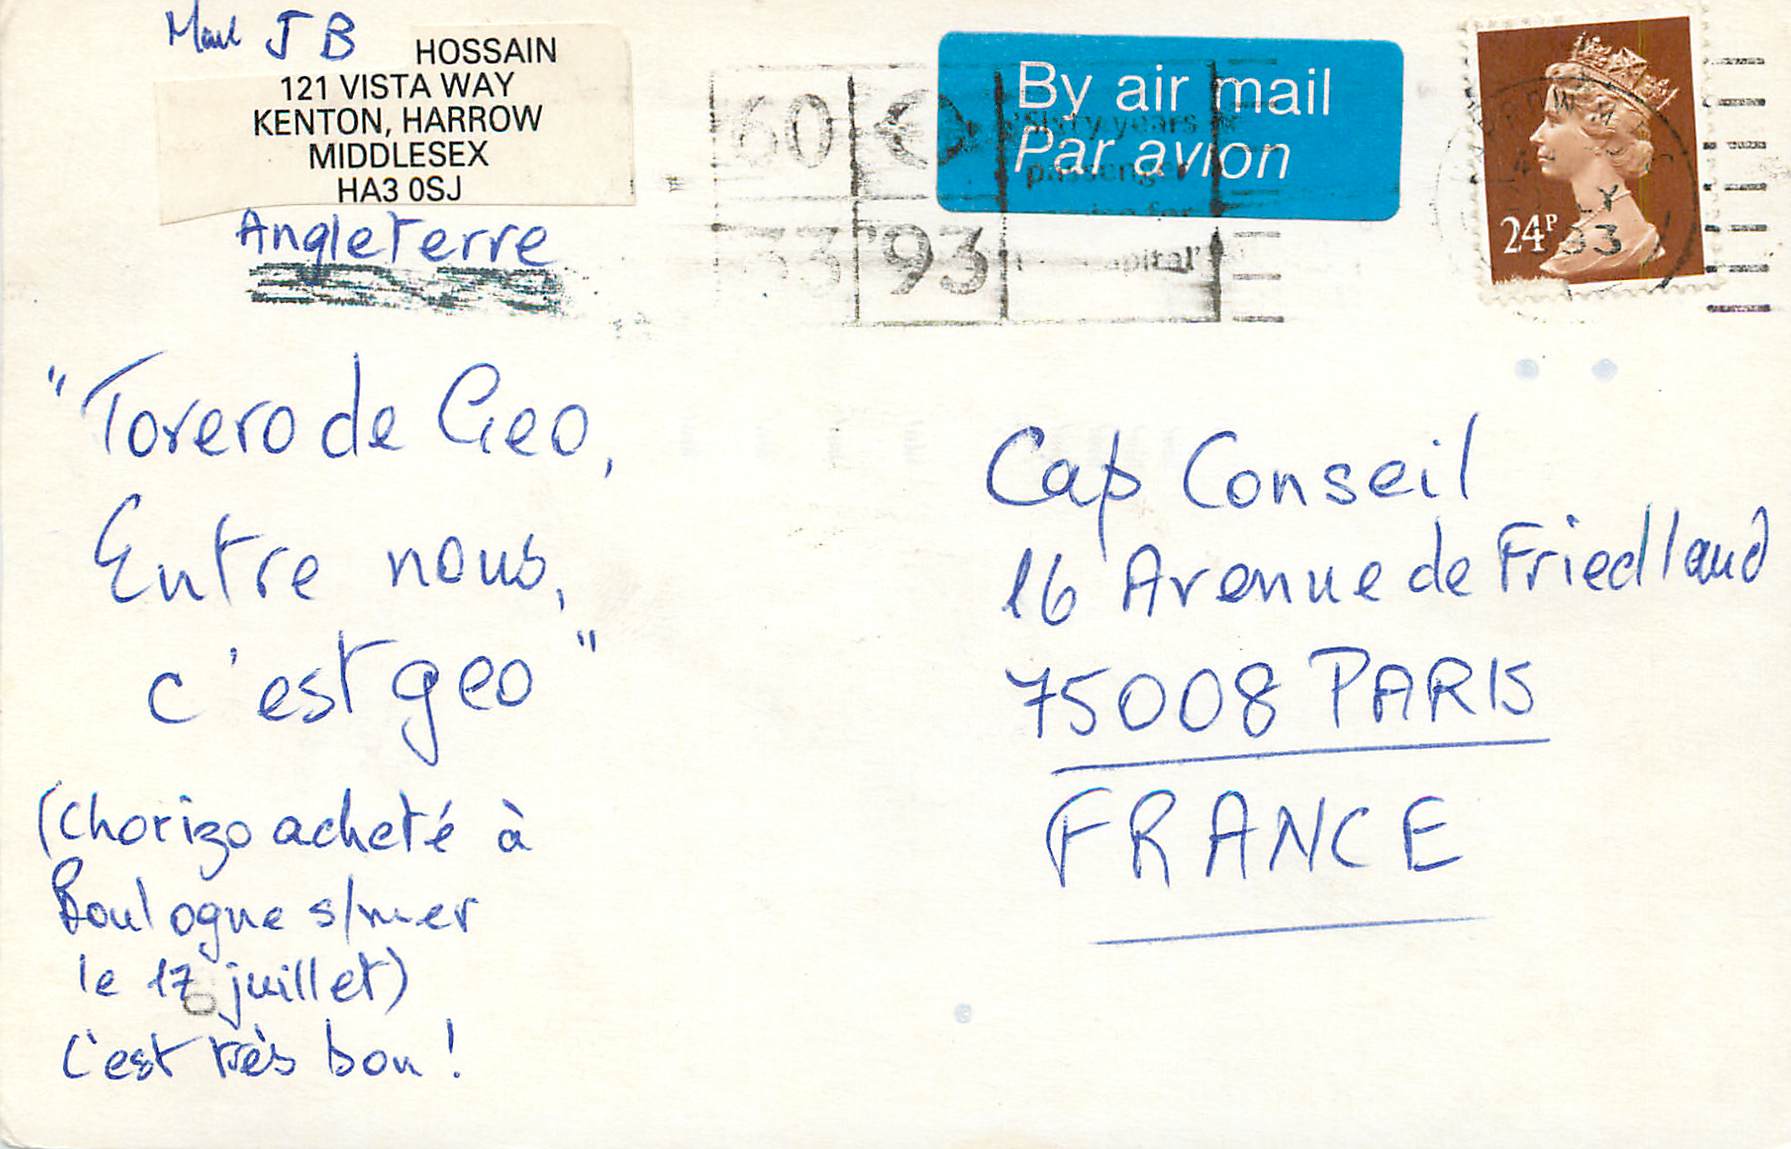 J B HOSSAIN
121 VISTA WAY
KENTON, HARROW
MIDDLESEX
HA3 0SJ
Angleterre
60
33 '93
'Sixty years
passenger
for
capital'
By air mail
Par avion
24P
"Torero de Geo,
Entre nous,
c'est geo"
(Chorizo acheté à
Boulogne s/mer
le 17 juillet)
C'est très bon!
Cap Conseil
16 Avenue de Friedland
75008 PARIS
FRANCE